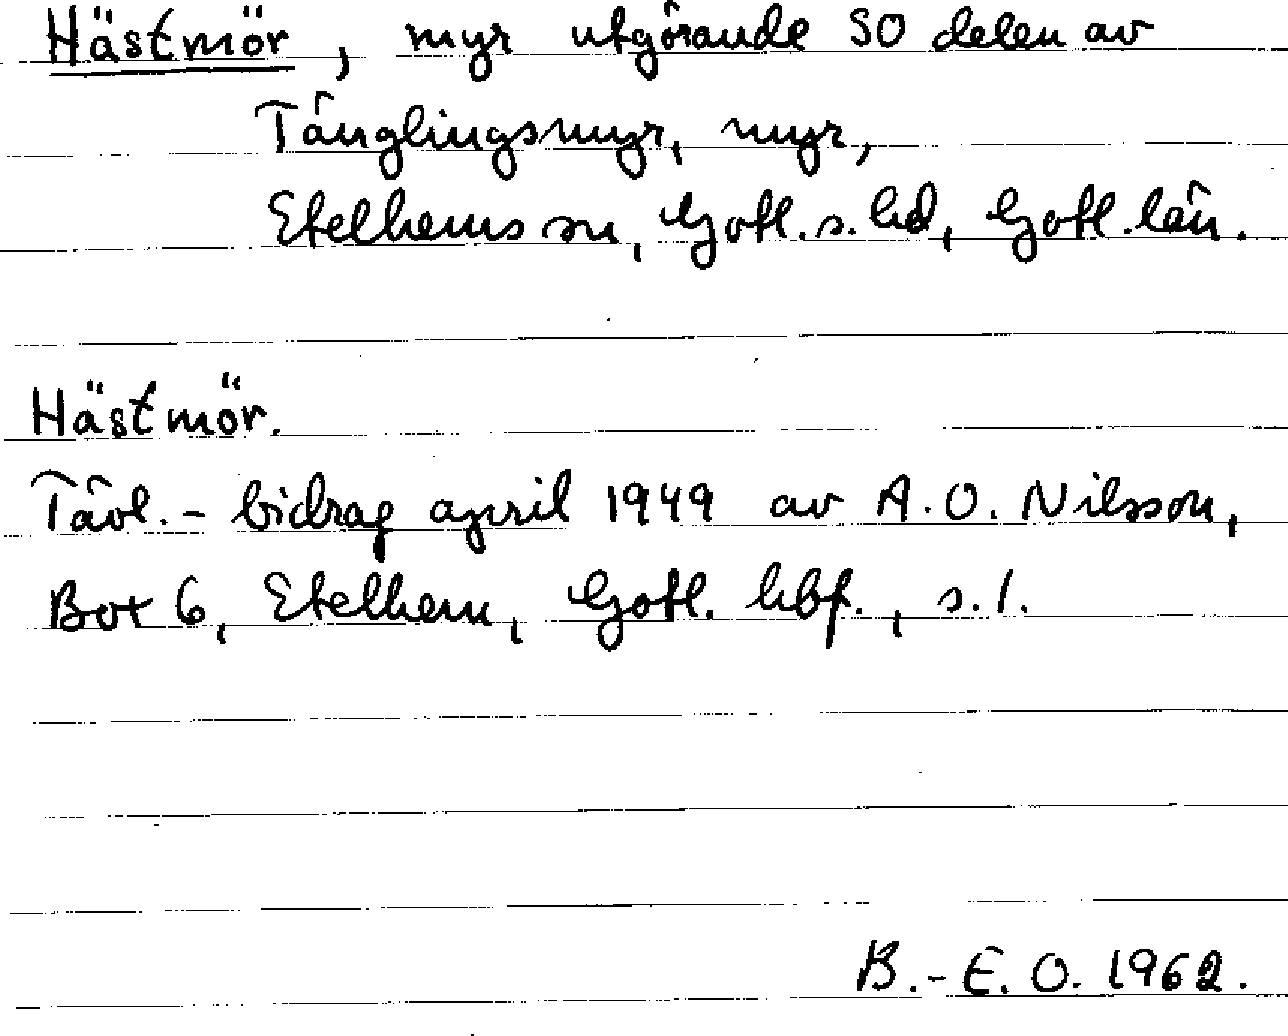 Hästmör, myr utgörande SO delen av
Tänglingsmyr, myr,
Etelhems sn, Gotl. s. hd, Gotl. län.
Hästmör.
Tävl. - bidrag april 1949 av A. O. Nilsson,
Bot 6, Etelhem, Gotl. hbf., s. 1.
B.-E. O. 1962.